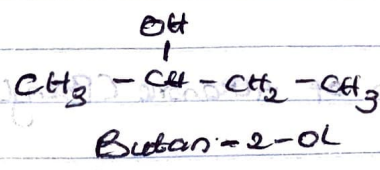 OH
|
CH₃ - CH - CH₂ - CH₃
Butan - 2 - OL